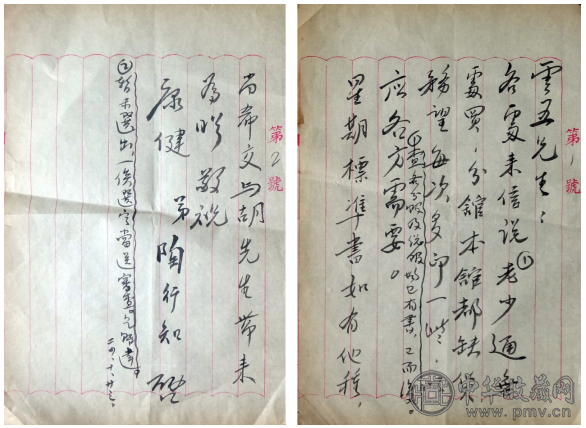 第1號
雲五先生：
各處來信說老少通
處買，分館本館都缺貨
務望每次多印一些，
應各方需要。
星期標準書如有他種，
第2號
尚希交與胡先生帶來
為盼敬祝
康健
弟陶行知啓
②暫未選出一俟選定當送審查
二四、十、廿三、
中华收藏网
www.pmv.cn